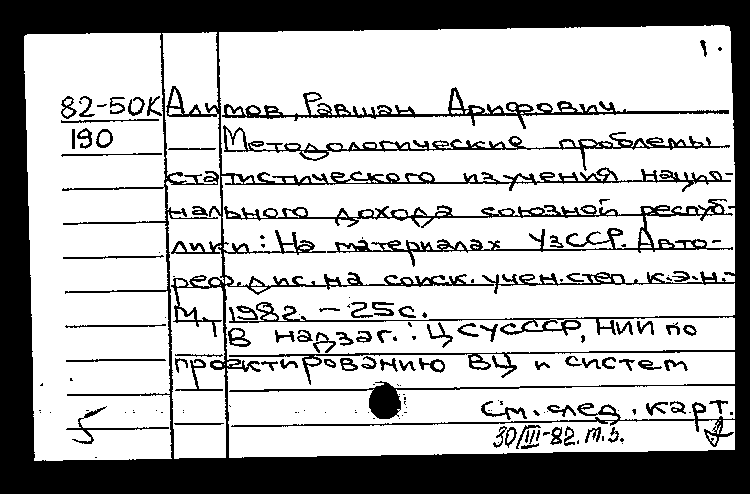 1.
82-50К Алимов, Равшан Арифович.
190 Методологические проблемы
статистического изучения нацио-
нального дохода союзной респуб-
лики: На материалах УзССР. Авто-
реф. дис. на соиск. учен. степ. к.э.н.-
М., 1982. - 25 с.
В надзаг.: ЦСУ СССР, НИИ по
проектированию ВЦ и систем
См. след. карт.
5 30/III-82. т.5.